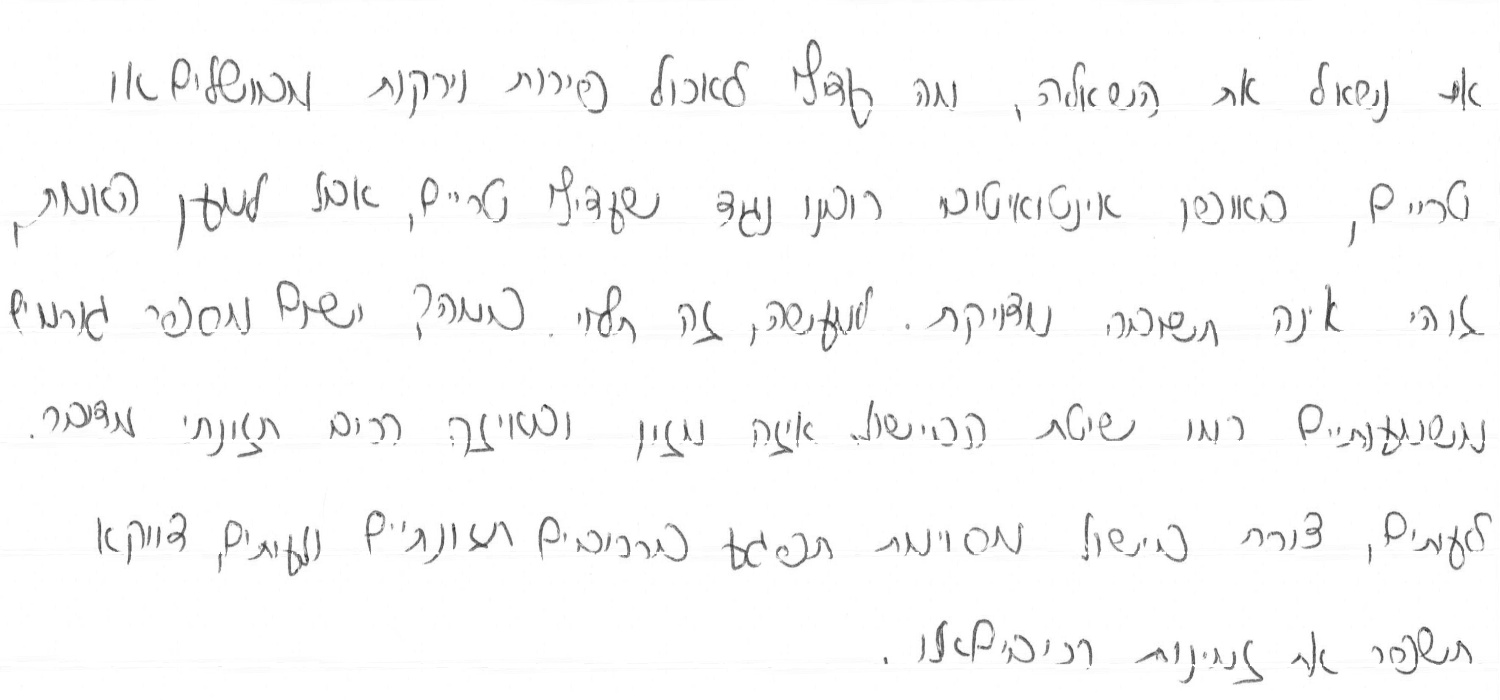 אם נשאל את השאלה, מה עדיף לאכול פירות וירקות מבושלים או
טריים, באופן אינטואיטיבי רובנו נגיד שעדיף טריים, אבל למען האמת,
זוהי אינה תשובה מדויקת. למעשה, זה תלוי. במה? ישנם מספר גורמים
משמעותיים כמו שיטת הבישול, איזה מזון ובאיזה רכיב תזונתי מדובר.
לעתים, צורת בישול מסוימת תפגע ברכיבים תזונתיים ולעיתים, דווקא
תשפר את זמינות רכיבים אלו.